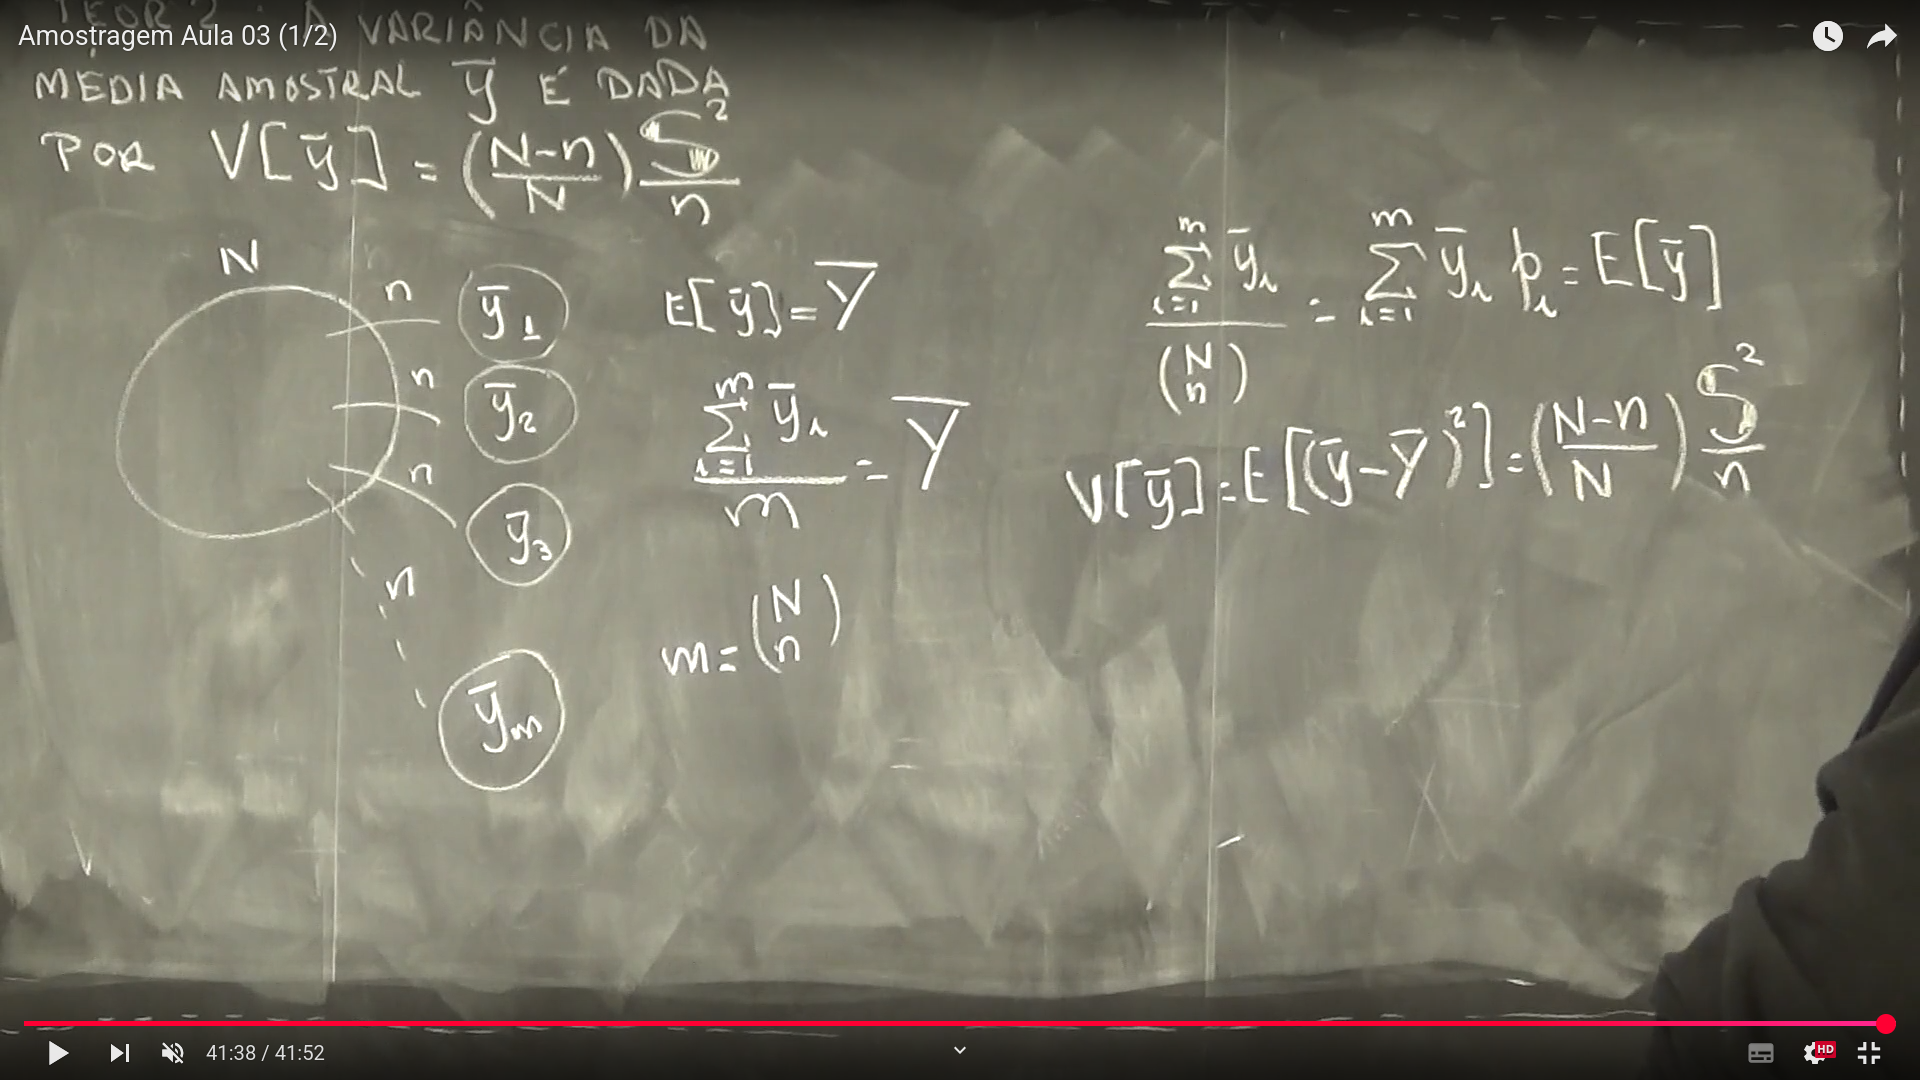 Amostragem Aula 03 (1/2)
TEOR 2: A VARIÂNCIA DA
MÉDIA AMOSTRAL ȳ É DADA
POR V[ȳ] = ((N-n)/N) S²/n
N
n ȳ₁
n ȳ₂
n ȳ₃
n
ȳₘ
E[ȳ] = Ȳ
∑ᵢ₌₁ᵐ ȳᵢ / m = Ȳ
m = (N n)
∑ᵢ₌₁ᵐ ȳᵢ / (N n) = ∑ᵢ₌₁ᵐ ȳᵢ pᵢ = E[ȳ]
V[ȳ] = E[(ȳ-Ȳ)²] = ((N-n)/N) S²/n
41:38 / 41:52
HD